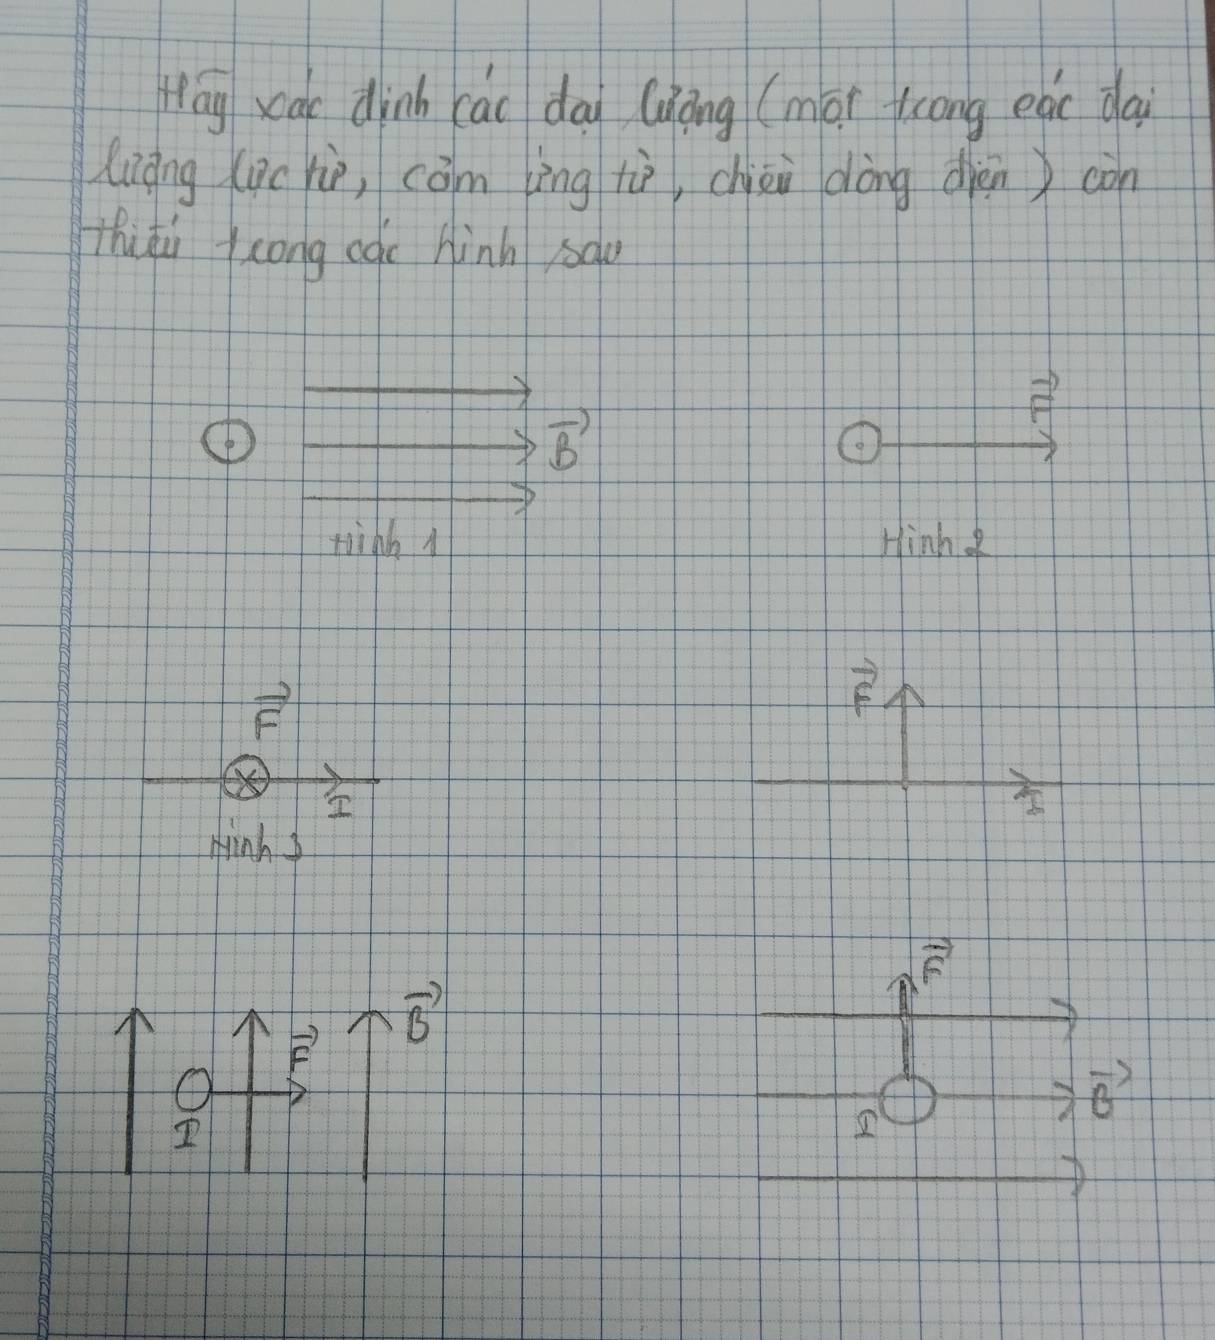 Hãy xác định các đại lượng (một trong các đại
lượng lực từ, cảm ứng từ, chiều dòng điện) còn
thiếu trong các hình sau
B F
Hình 1 Hình 2
F F
I I
Hình 3
B F
F
I I B